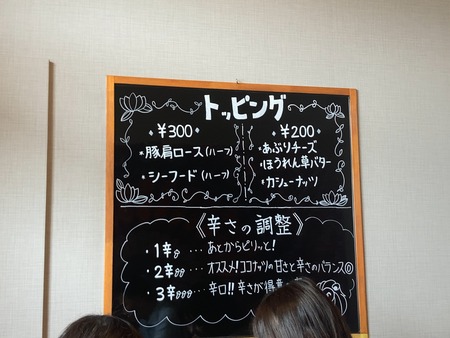 トッピング
¥300
・豚肩ロース(ハーフ)
・シーフード(ハーフ)
¥200
・あぶりチーズ
・ほうれん草バター
・カシューナッツ
《辛さの調整》
・1辛 … あとからピリッと!
・2辛 … オススメ!ココナッツの甘さと辛さのバランス◎
・3辛 … 辛口!!辛さが得意